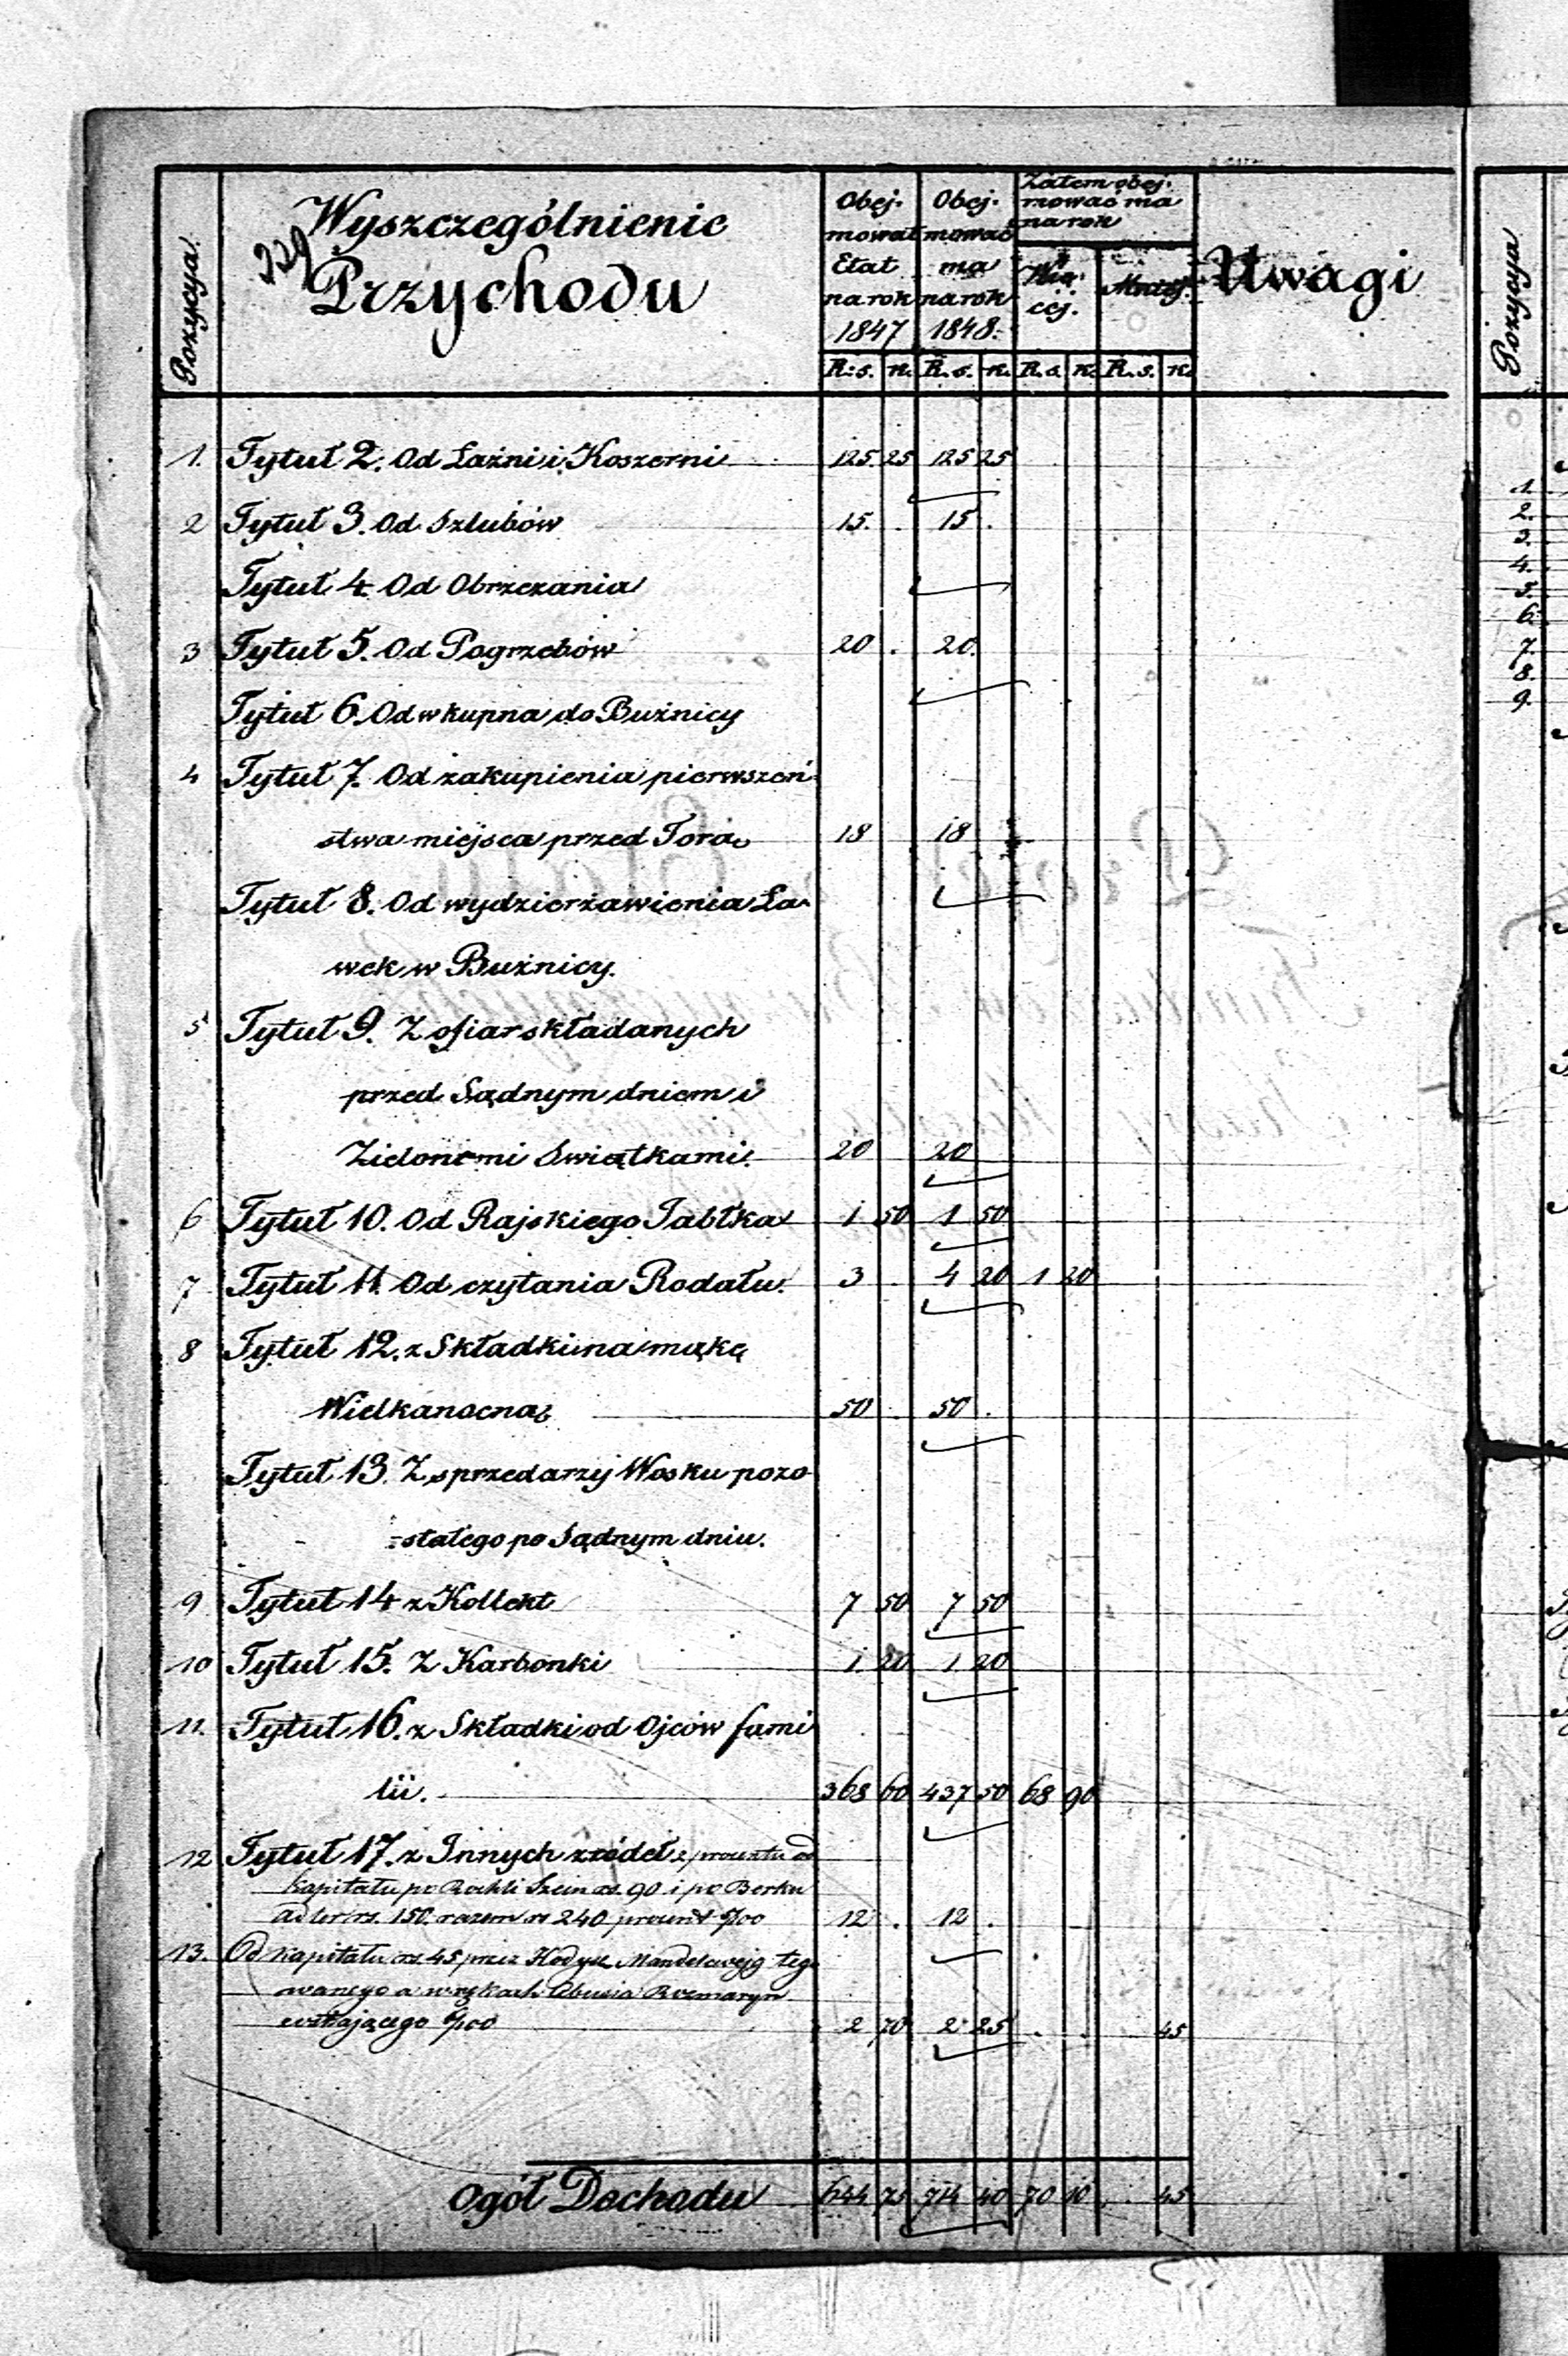 Pozycya.
Wyszczególnienie
229
Przychodu
Obej-
mował
Etat
na rok
1847
Obej-
mować
ma
na rok
1848.
Zatem obej-
mować ma
na rok
Wię-
cej.
Mniej.
Uwagi
Pozycya
R: s. k. R. s. k. R. s. k. R. s. k.
1. Tytuł 2. Od Łaźni i Koszerni 125 25 125 25
2 Tytuł 3. Od Szlubów 15. . 15 .
Tytuł 4. Od Obrzezania
3 Tytuł 5. Od Pogrzebów 20 . 20.
Tytuł 6. Od wkupna do Bużnicy
4 Tytuł 7. Od zakupienia pierwszeń-
stwa miejsca przed Torą 18 18
Tytuł 8. Od wydzierżawienia Ła-
wek w Bużnicy.
5 Tytuł 9. Z ofiar składanych
przed Sądnym dniem i
Zielonemi Swiątkami. 20 20
6 Tytuł 10. Od Rajskiego Jabłka 1 50 1 50
7 Tytuł 11. Od czytania Rodału. 3 . 4 20 1 20
8 Tytuł 12. z Składki na mąkę
Wielkanocną 50 . 50 .
Tytuł 13. Z sprzedarzy Wosku pozo-
stałego po Sądnym dniu.
9 Tytuł 14 z Kollekt 7 50 7 50
10 Tytuł 15. Z Karbonki 1. 20 1 20
11. Tytuł 16. z Składki od Ojców fami
lii. 368 60 437 50 68 90
12 Tytuł 17. z Innych zródeł z procentu od
Kapitału po Rochli Szein rs. 90 i po Berku
Adler rs. 150. razem rs 240 procent 5/00 12 . 12 .
13. Od kapitału rs. 45 przez Hodysę Mandelcwejg leg
owanego a w rękach Abusia Rozmaryn
6/00 2 70 2 25 . . 45
Ogół Dochodu 644 75 714 40 70 10 . 45
1.
2.
3.
4.
5.
6.
7.
8.
9.